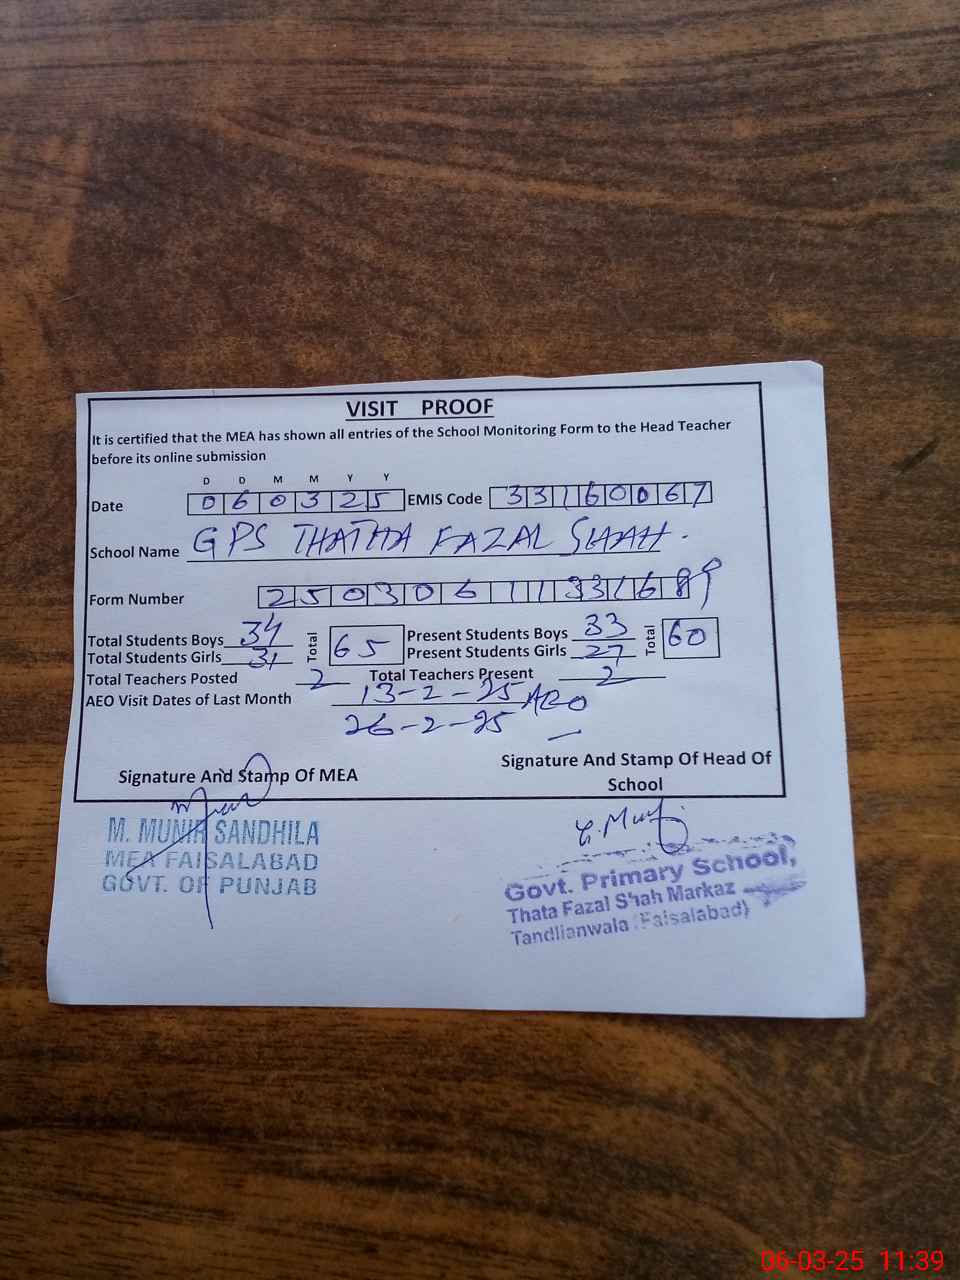 VISIT PROOF
It is certified that the MEA has shown all entries of the School Monitoring Form to the Head Teacher
before its online submission
D D M M Y Y
Date 060325 EMIS Code 33160067
School Name GPS THATHA FAZAL SHAH.
Form Number 25030611331689
Total Students Boys 34 Total 65 Present Students Boys 33 Total 60
Total Students Girls 31 Present Students Girls 27
Total Teachers Posted 2 Total Teachers Present 2
AEO Visit Dates of Last Month 13-2-25 AEO
26-2-25
Signature And Stamp Of MEA
Signature And Stamp Of Head Of
School
M. MUNIR SANDHILA
MEA FAISALABAD
GOVT. OF PUNJAB
Govt. Primary School,
Thata Fazal Shah Markaz
Tandlianwala (Faisalabad)
06-03-25 11:39